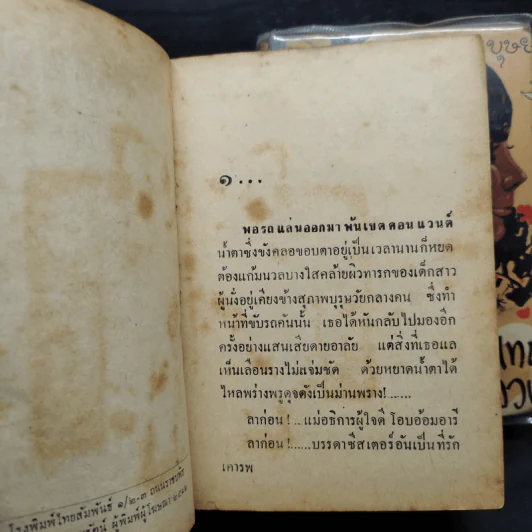 ๑...
พอรถแล่นออกมาพ้นเขตคอนแวนต์
น้ำตาซึ่งขังคลอขอบตาอยู่เป็นเวลานานก็หยด
ต้องแก้มนวลบางใสคล้ายผิวทารกของเด็กสาว
ผู้นั่งอยู่เคียงข้างสุภาพบุรุษวัยกลางคน ซึ่งทำ
หน้าที่ขับรถคันนั้น เธอได้หันกลับไปมองอีก
ครั้งอย่างแสนเสียดายอาลัย แต่สิ่งที่เธอแล
เห็นเลือนรางไม่แจ่มชัด ด้วยหยาดน้ำตาได้
ไหลพร่างพรูดุจดังเป็นม่านพราง!......
ลาก่อน!...แม่อธิการผู้ใจดี โอบอ้อมอารี
ลาก่อน!......บรรดาซีสเตอร์อันเป็นที่รัก
เคารพ
โรงพิมพ์ไทยสัมพันธ์ ๑/๒-๓ ถนน
ผู้พิมพ์ผู้โฆษณา
บุษย
ไทย